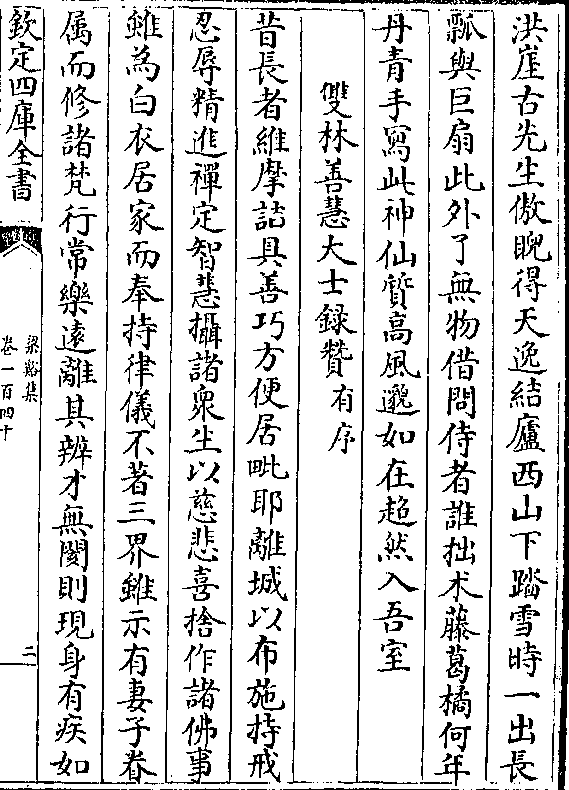 洪崖古先生傲睨得天逸結廬西山下踏雪時一出長
瓢與巨扇此外了無物借問侍者誰拙木藤葛橘何年
丹青手寫此神仙質高風邈如在超然入吾室
雙林善慧大士録贊有序
昔長者維摩詰具善巧方便居毗耶離城以布施持戒
忍辱精進禪定智慧攝諸衆生以慈悲喜捨作諸佛事
雖為白衣居家而奉持律儀不著三界雖示有妻子眷
属而修諸梵行常樂遠離其辨才無閡則現身有疾如
欽定四庫全書
梁谿集
卷一百四十
二